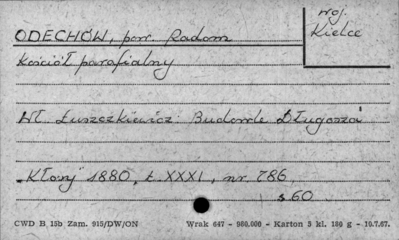 woj.
ODECHÓW, pow. Radom Kielce
Kościół parafialny
Wł. Łuszczkiewicz: Budowle Długosza
"Kłosy" 1880, t. XXXI, nr. 786,
s 60
CWD B 15b Zam. 915/DW/ON Wrak 647 - 960.000 - Karton 3 kl. 180 g - 10.7.67.